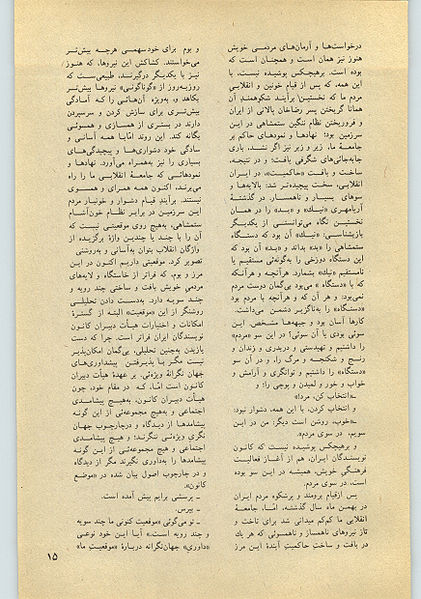 درخواست‌ها و آرمان‌های مردمی خویش
هنوز نیز همان است و همچنان است که
بوده است. برهیچکس پوشیده نیست، با
این همه، که پس از قیام خونین و انقلابی
مردم ما که نخستین برآیند شکوهمند آن
همانا گریختن پسر رضاخان پالانی از ایران
و فروریختن نظام ننگین ستمشاهی در این
سرزمین بود: نهادها و نمودهای حاکم بر
جامعهٔ ما، زیر و زبر نیز اگر نشد، باری
جابه‌جائی‌های شگرفی یافت؛ و در نتیجه،
ساخت و بافت «حاکمیت»، در ایران
انقلابی، سخت پیچیده‌تر شد؛ بالایه‌ها و
سوهای بسیار و ناهمساز. در گذشتهٔ
آریامهری «نیک» و «بد» را در همان
نخستین نگاه می‌توانستی از یکدیگر
بازبشناسی: «نیک» آن بود که دستگاه
ستمشاهی را «بد» بداند و «بد» آن بود که
این دستگاه دوزخی را به‌گونه‌ئی مستقیم یا
نامستقیم «نیک» بشمارد. هرآنچه و هرآنکه
که با «دستگاه» می‌بود بی‌گمان دوست مردم
نمی‌بود؛ و هر آن که و هرآنچه با مردم بود
«دستگاه» را به‌ناگزیر دشمن می‌داشت.
کارها آسان بود و جبهه‌ها مشخص. این
سوئی بودی یا آن سوئی؟ در این سو «مردم»
را داشتیم و تهیدستی و دربدری و زندان و
رنج و شکنجه و مرگ را، و در آن سو
«دستگاه» را داشتیم و توانگری و آرامش و
خواب و خور و لمیدن و پوچی را؛ و
«انتخاب کن، مرد!»
و انتخاب کردن، با این همه، دشوار نبود:
«خوب، روشن است دیگر: من در این
سویم، در سوی مردم».
و برهیچکس پوشیده نیست که کانون
نویسندگان ایران، هم از آغاز فعالیت
فرهنگی خویش، همیشه در این سو بوده
است، در سوی مردم.
پس ازقیام برومند و پرشکوه مردم ایران
در بهمن ماه سال گذشته، امّا، جامعهٔ
انقلابی ما کم‌کم میدانی شد برای تاخت و
تاز نیروهای ناساز و ناهمسوئی که هر یک
در بافت و ساخت حاکمیتِ آیندهٔ این مرز
و بوم برای خودسهمی هرچه بیش‌تر
می‌خواستند. کشاکش این نیروها، که هنوز
نیز با یکدیگر درگیرند، طبیعی‌ست که
روزبه‌روز از «گوناگونی» نیروها بیش‌تر
بکاهد و، به‌ویژه آن‌هائی را که آمادگی
بیش‌تری برای سازش کردن و سرسپردن
دارند در بستری از همسازی و همسوئی
یگانه کند. این روند امّا با همه آسانی و
سادگی خود دشواری‌ها و پیچیدگی‌های
بسیاری را نیز به‌همراه می‌آورد. نهادها و
نمودهائی که جامعهٔ انقلابی ما را راه
می‌برند، اکنون همه همرای و همسوی
نیستند. برآیندِ قیام دشوار و خونبار مردم
این سرزمین در برابر نظام خون‌آشام
ستمشاهی، به‌هیچ روی موقعیتی نیست که
آن را با یک یا چندین واژهٔ برگزیده از
واژگان انقلاب بتوان به‌آسانی و به‌روشنی
تصویر کرد. موقعیتی داریم اکنون در این
مرز و بوم، که فراتر از خاستگاه و لایه‌های
مردمی خویش بافت و ساختی چند رویه و
چند سویه دارد. به‌دست دادن تحلیلی
روشنگر از این «موقعیت» البته از گسترهٔ
امکانات و اختیارات هیأت دبیران کانون
نویسندگان ایران فراتر است. چرا که دست
یازیدن به‌چنین تحلیلی، بی‌گمان امکان‌پذیر
نیست مگر با پذیرفتن پیشداوری‌های
جهان نگرانهٔ ویژه‌ئی. بر عهدهٔ هیأت دبیران
کانون است امّا، که در مقام خود، چون
هیأت دبیران کانون، به‌هیچ پیشامدی
اجتماعی و به‌هیچ مجموعه‌ئی از این گونه
پیشامدها از دیدگاه و درچارچوب جهان
نگری ویژه‌ئی ننگرند؛ و هیچ پیشامدی
اجتماعی و هیچ مجموعه‌ئی از این گونه
پیشامدها را به‌داوری نگیرند مگر از دیدگاه
و در چارچوب اصول بیان شده در «موضع
کانون».
ـ پرسشی برایم پیش آمده است.
ـ بپرس.
ـ تو می‌گوئی «موقعیت کنونی ما چند سویه
و چند رویه است.» آیا این خود نوعی
«داوری» جهان‌نگرانه دربارهٔ «موقعیتِ ما»
۱۵